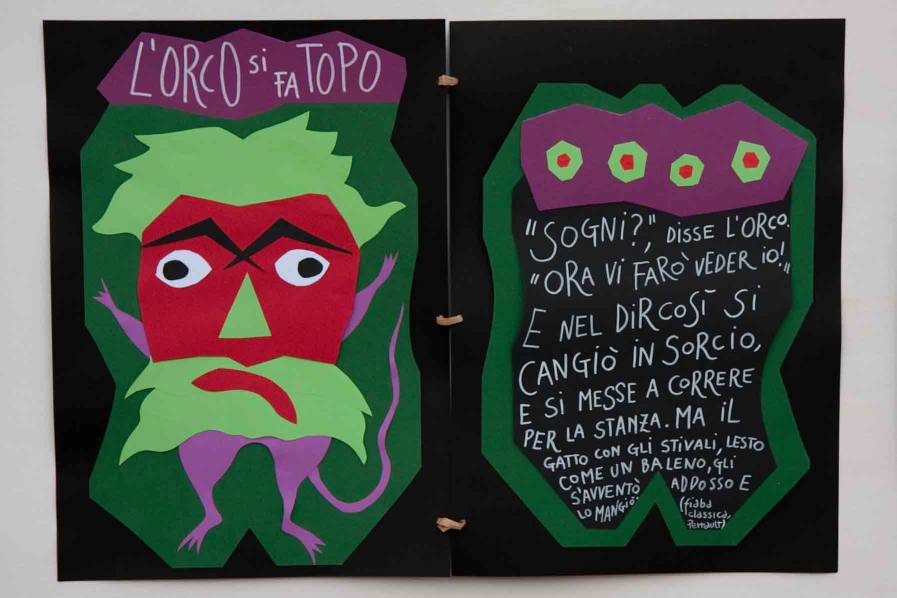 L'ORCO si FA TOPO
"SOGNi?", DISSE L'ORCO.
"ORA Vi FARÒ VEDER iO!"
E NEL DiR COSÌ Si
CANGIÒ iN SORCIO,
E Si MESSE A CORRERE
PER LA STANZA. MA iL
GATTO CON GLi STiVALi, LESTO
COME UN BALENO, GLi
S'AVVENTÒ ADDOSSO E
LO MANGiÒ.
(fiaba
classica,
Perrault)